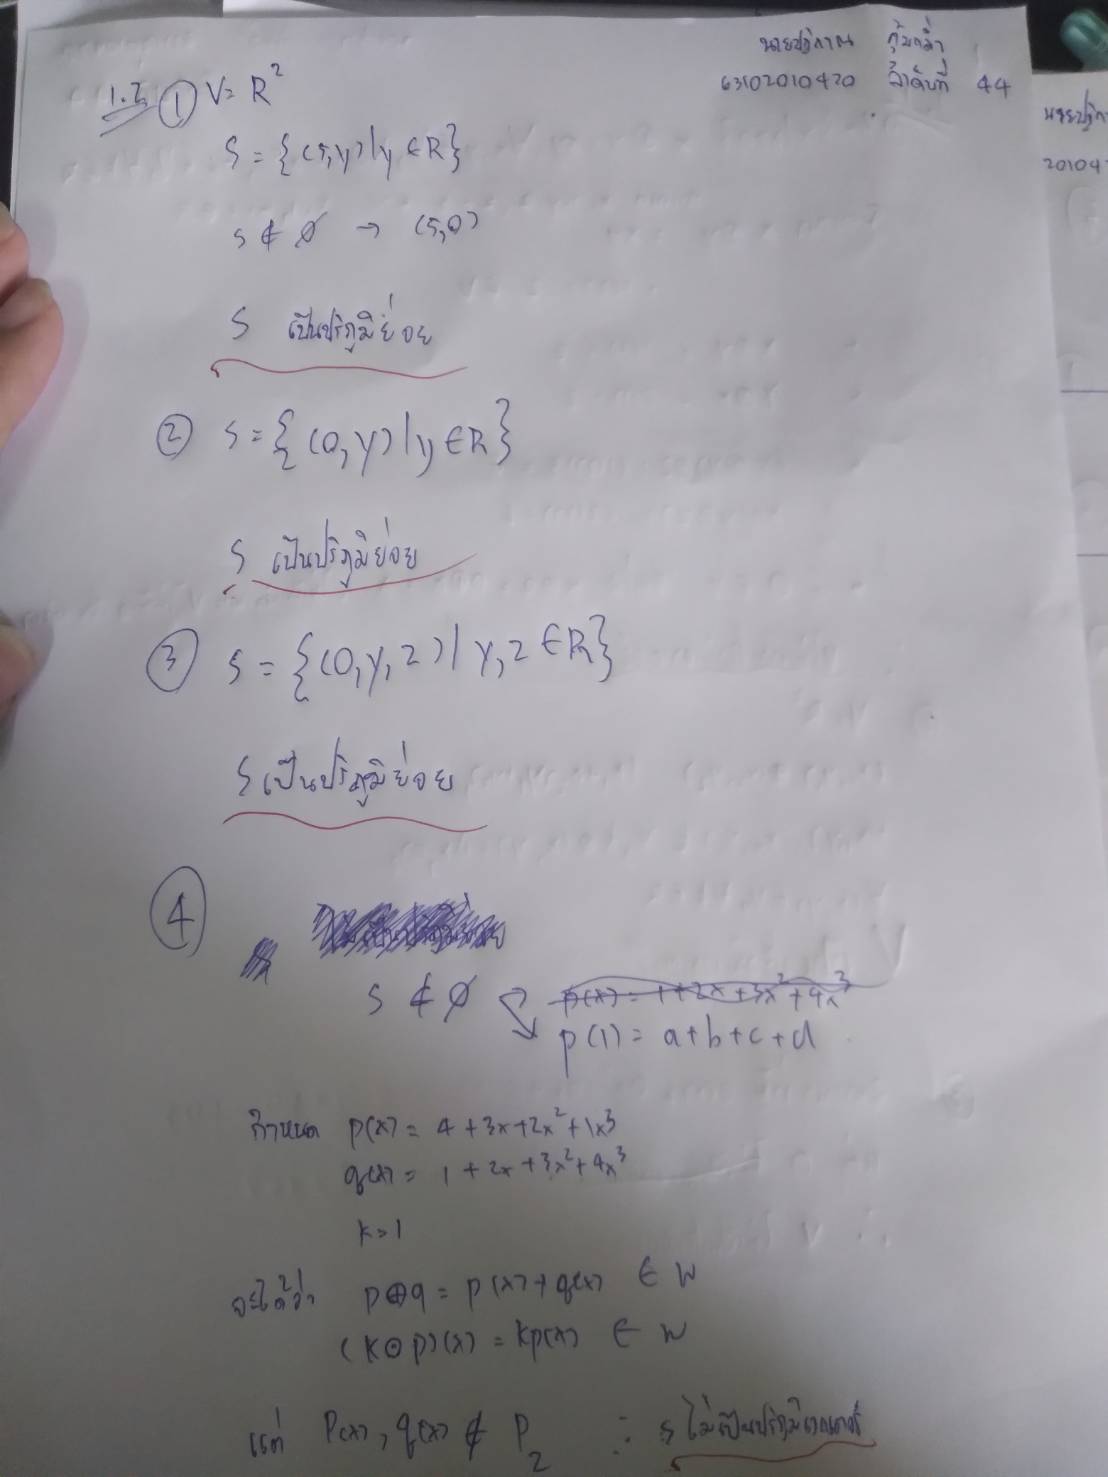 นายปฏิภาณ
63102010420 ลำดับที่ 44
1.2 ① V = R²
S = {(5,y) | y ∈ R}
S ∉ ∅ → (5,0)
S เป็นปริภูมิย่อย
② S = {(0,y) | y ∈ R}
S เป็นปริภูมิย่อย
③ S = {(0,y,z) | y,z ∈ R}
S เป็นปริภูมิย่อย
④
S ∉ ∅ p(x) = 1+2x+3x²+4x³
p(1) = a+b+c+d
กำหนด p(x) = 4+3x+2x²+1x³
q(x) = 1+2x+3x²+4x³
k = 1
จะได้ว่า p⊕q = p(x)+q(x) ∈ W
(k⊙p)(x) = kp(x) ∈ W
แต่ P(x), q(x) ∉ P₂ ∴ S ไม่เป็นปริภูมิเวกเตอร์
20104